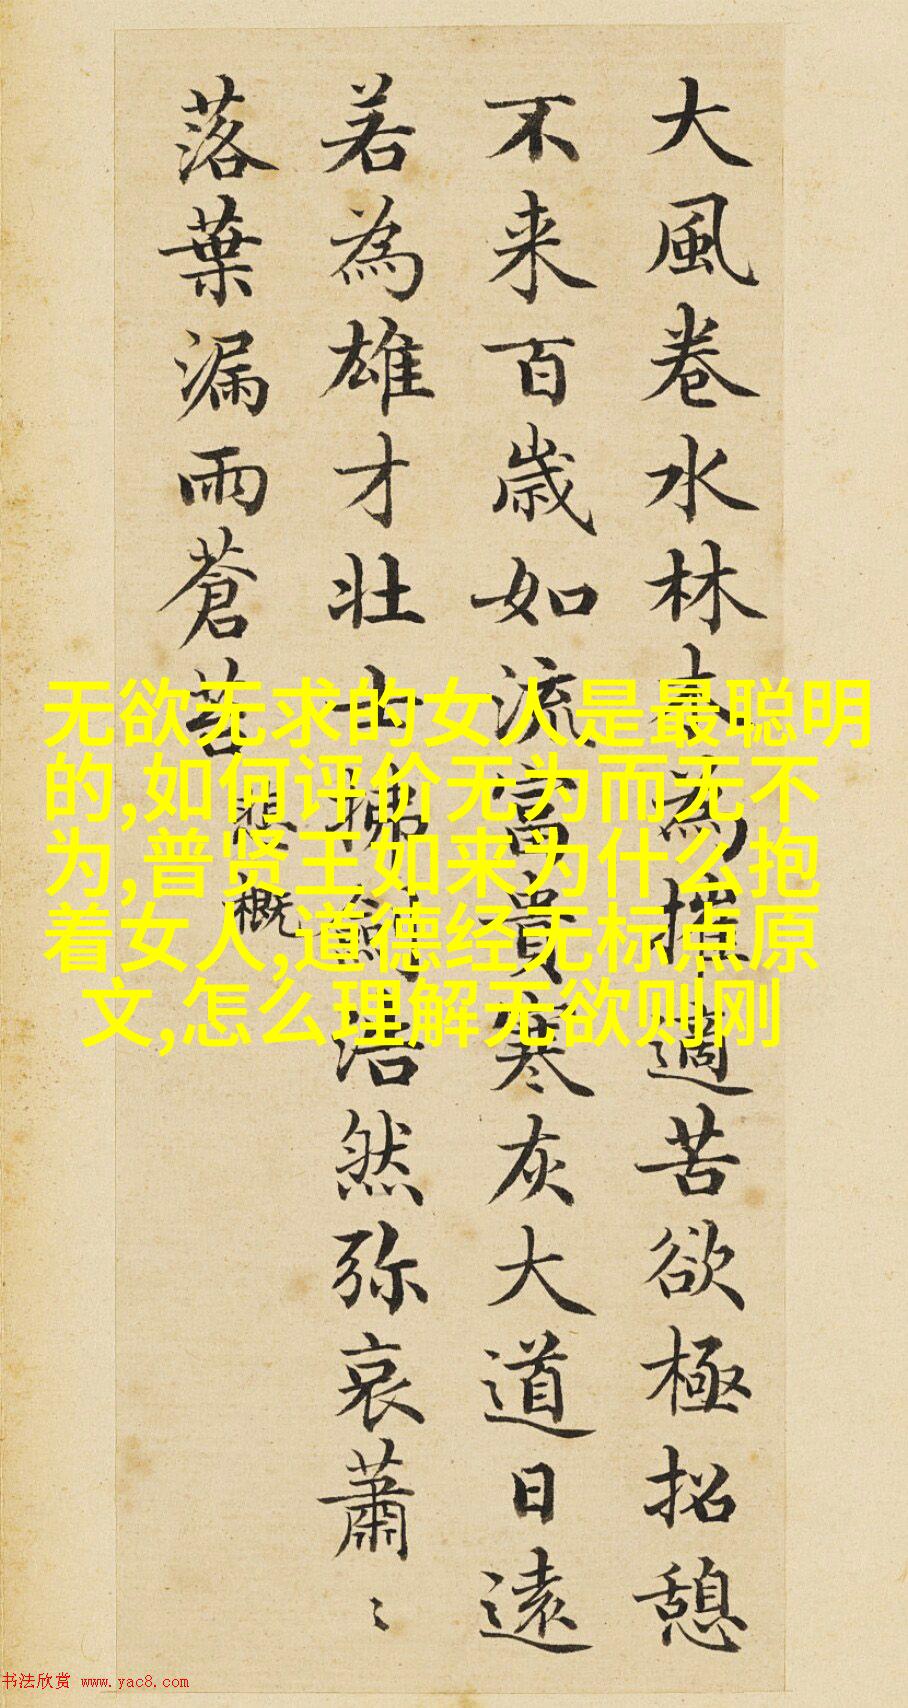 大風卷水林木為摧適苦欲極招憩
不来百歲如流富貴寒灰大道日遠
若為雄才壯士拂劒浩然弥哀蕭〻
落葉漏雨蒼苔
悲概
无欲无求的女人是最聪明
的,如何评价无为而无不
为,普贤王如来为什么抱
着女人,道德经无标点原
文,怎么理解无欲则刚
书法欣赏 www.yac8.com